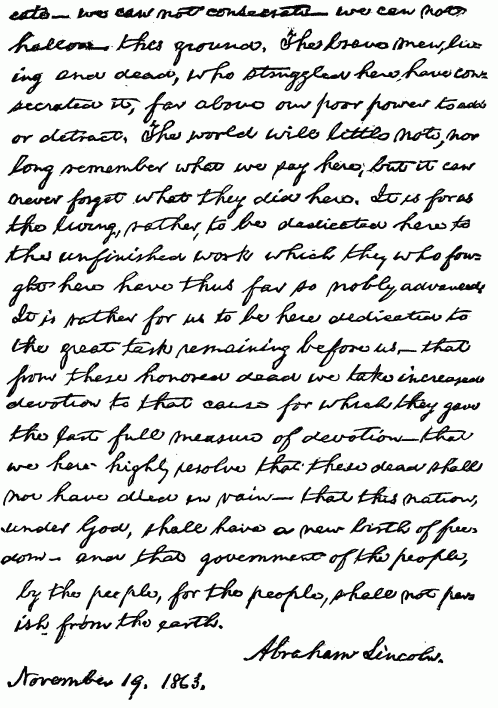 cate— we can not consecrate— we can not
hallow— this ground. The brave men, liv-
ing and dead, who struggled here, have con-
secrated it, far above our poor power to add
or detract. The world will little note, nor
long remember what we say here, but it can
never forget what they did here. It is for us
the living, rather, to be dedicated here to
the unfinished work which they who fou-
ght here have thus far so nobly advanced.
It is rather for us to be here dedicated to
the great task remaining before us— that
from these honored dead we take increased
devotion to that cause for which they gave
the last full measure of devotion— that
we here highly resolve that these dead shall
not have died in vain— that this nation,
under God, shall have a new birth of free-
dom— and that government of the people,
by the people, for the people, shall not per-
ish from the earth.
Abraham Lincoln.
November 19. 1863.